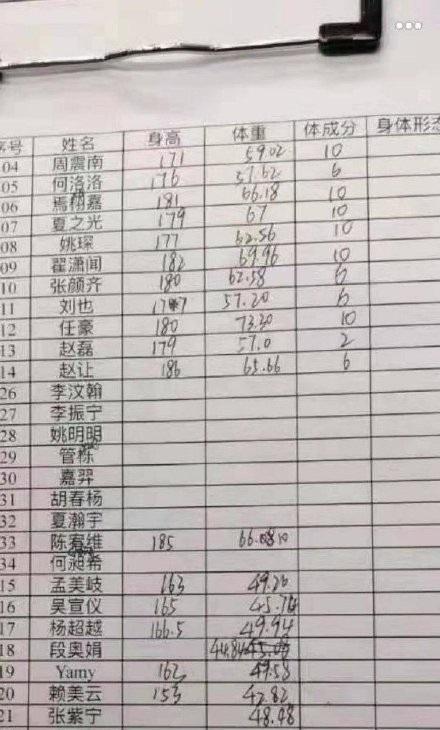 序号 姓名 身高 体重 体成分 身体形态
04 周震南 171 59.02 10
05 何洛洛 176 57.62 6
06 焉栩嘉 181 66.18 10
07 夏之光 179 67 10
08 姚琛 177 62.56 10
09 翟潇闻 182 69.96 10
10 张颜齐 180 62.58 6
11 刘也 57.20 6
12 任豪 180 73.30 10
13 赵磊 179 57.0 2
14 赵让 186 65.66 6
26 李汶翰
27 李振宁
28 姚明明
29 管栎
30 嘉羿
31 胡春杨
32 夏瀚宇
33 陈宥维 185
34 何昶希
15 孟美岐 163 49.20
16 吴宣仪 165 45.74
17 杨超越 166.5 49.94
18 段奥娟 44.84
19 Yamy 162 49.58
20 赖美云 153 42.82
21 张紫宁 48.48